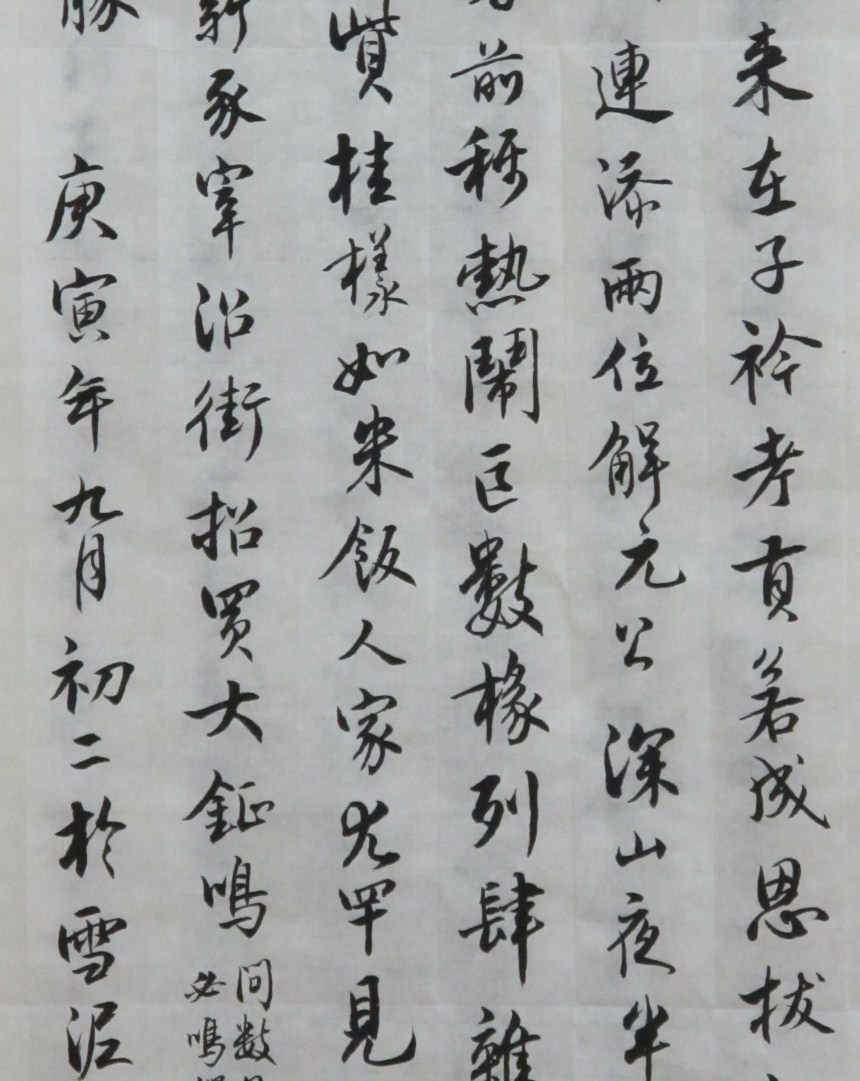 来在子衿考貢若成恩拔
連添兩位解元公深山夜半
前稱熱鬧區數椽列肆雜
貲桂樣如米飯人家尤罕見
新豕宰沿街招買大鉦鳴
間数
必鳴
豚庚寅年九月初二於雪泥